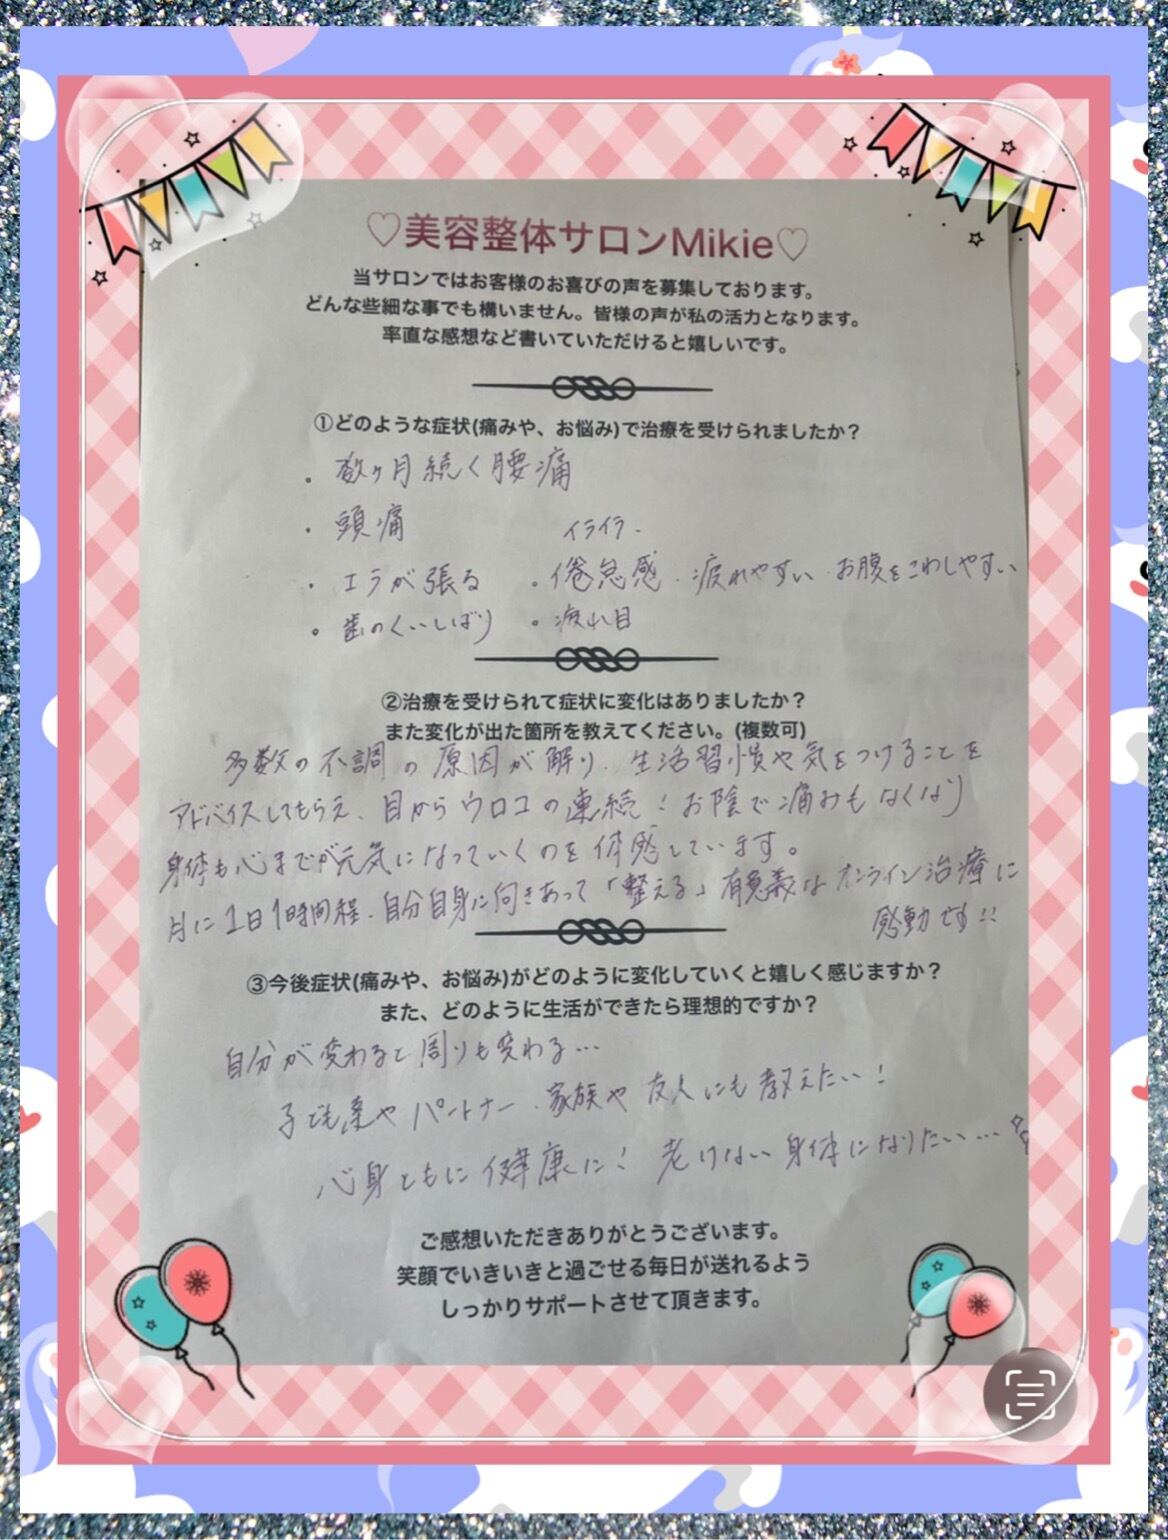 ♡美容整体サロンMikie♡
当サロンではお客様のお喜びの声を募集しております。
どんな些細な事でも構いません。皆様の声が私の活力となります。
率直な感想など書いていただけると嬉しいです。
①どのような症状(痛みや、お悩み)で治療を受けられましたか？
・数ヶ月続く腰痛
・頭痛 イライラ・
・エラが張る ・倦怠感・疲れやすい・お腹をこわしやすい
・歯のくいしばり ・疲れ目
②治療を受けられて症状に変化はありましたか？
また変化が出た箇所を教えてください。(複数可)
多数の不調の原因が解り、生活習慣や気をつけることを
アドバイスしてもらえ、目からウロコの連続！お陰で痛みもなくなり
身体も心までが元気になっていくのを体感しています。
月に1日1時間程、自分自身に向きあって「整える」有意義なオンライン治療に
感動です!!
③今後症状(痛みや、お悩み)がどのように変化していくと嬉しく感じますか？
また、どのように生活ができたら理想的ですか？
自分が変わると周りも変わる…
子ども達やパートナー、家族や友人にも教えたい！
心身ともに健康に！老けない身体になりたい…
ご感想いただきありがとうございます。
笑顔でいきいきと過ごせる毎日が送れるよう
しっかりサポートさせて頂きます。